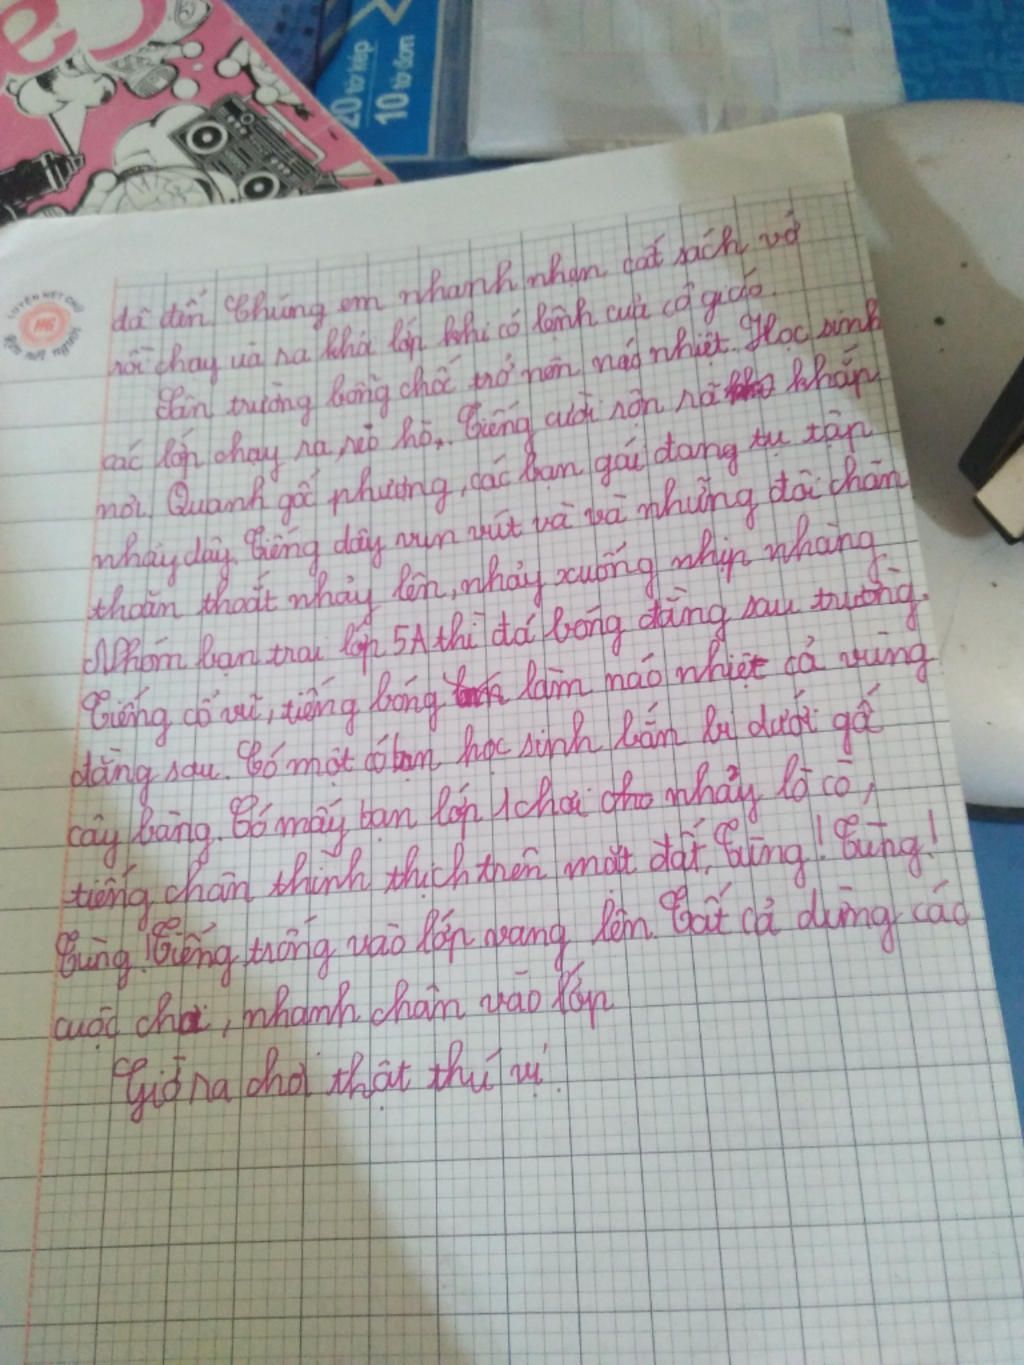 20 tờ kép
10 tờ đơn
LUYỆN NÉT CHỮ
HG
RÈN NẾT NGƯỜI
đã đến. Chúng em nhanh nhẹn cất sách vở
rồi chạy uà ra khỏi lớp khi có lệnh của cô giáo.
Sân trường bỗng chốc trở nên náo nhiệt. Học sinh
các lớp chạy ra, reo hò. Tiếng cười rộn rã khắp
nơi. Quanh gốc phượng, các bạn gái đang tụ tập
nhảy dây. Tiếng dây vun vút và và những đôi chân
thoăn thoắt nhảy lên, nhảy xuống nhịp nhàng.
Nhóm bạn trai lớp 5A thì đá bóng đằng sau trường.
Tiếng cổ vũ, tiếng bóng làm náo nhiệt cả vùng
đằng sau. Có một số bạn học sinh bắn bi dưới gố
cây bàng. Có mấy bạn lớp 1 chơi nhảy lò cò,
tiếng chân thình thịch trên mắt đất. Tùng! Tùng!
Tùng! Tiếng trống vào lớp vang lên. Tất cả dừng các
cuộc chơi, nhanh chân vào lớp
Giờ ra chơi thật thú vị.